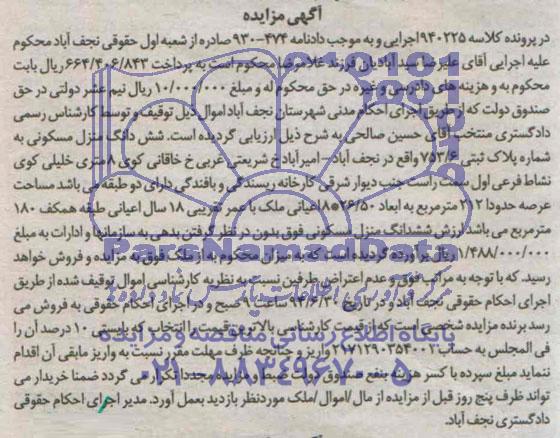 آگهی مزایده
در پرونده کلاسه ۹۴۰۲۲۵ اجرایی و به موجب دادنامه ۴۷۴-۹۳۰ صادره از شعبه اول حقوقی نجف آباد محکوم
علیه اجرایی آقای علیرضا سید آبادیان فرزند غلامرضا محکوم است به پرداخت ۶۶۴/۴۰۶/۸۴۳ ریال بابت
محکوم به و هزینه های دادرسی و غیره در حق محکوم له و مبلغ ۱۰/۰۰۰/۰۰۰ ریال نیم عشر دولتی در حق
صندوق دولت که از طریق اجرای احکام مدنی شهرستان نجف آباد اموال ذیل توقیف و توسط کارشناس رسمی
دادگستری منتخب آقای حسین صالحی به شرح ذیل ارزیابی گردیده است. شش دانگ منزل مسکونی به
شماره پلاک ثبتی ۷۵۳/۶ واقع در نجف آباد- امیرآباد خ شریعتی غربی خ خاقانی کوی ۸متری خلیلی کوی
نشاط فرعی اول سمت راست جنب دیوار شرقی کارخانه ریسندگی و بافندگی دارای دو طبقه می باشد مساحت
عرصه حدودا ۲۱۲ مترمربع به ابعاد ۲۶/۵۰*۸ اعیانی ملک با عمر تقریبی ۱۸ سال اعیانی طبقه همکف ۱۸۰
متر مربع می باشد ارزش ششدانگ منزل مسکونی فوق بدون در نظر گرفتن بدهی به سازمانها و ادارات به مبلغ
۱/۴۸۸/۰۰۰/۰۰۰ ریال برآورده گردیده است که به میزان محکوم به از ملک فوق به مزایده و فروش خواهد
رسید. که با توجه به مراتب فوق و عدم اعتراض طرفین نسبت به نظریه کارشناسی اموال توقیف شده از طریق
اجرای احکام حقوقی نجف آباد و در تاریخ ۹۴/۶/۳۰ ساعت ۹ صبح و در اجرای احکام حقوقی به فروش می
رسد برنده مزایده شخصی است که از قیمت کارشناسی بالاترین قیمت را انتخاب که بایستی ۱۰ درصد آن را
فی المجلس به حساب ۲۱۷۱۲۹۰۳۵۴۰۰۲ واریز و چنانچه ظرف مهلت مقرر نسبت به واریز مابقی آن اقدام
ننماید مبلغ سپرده با کسر هزینه بنفع صندوق دولت ضبط و مزایده مجددا تکرار می گردد ضمنا خریدار می
تواند ظرف پنج روز قبل از مزایده از مال/اموال/ملک موردنظر بازدید بعمل آورد. مدیر اجرای احکام حقوقی
دادگستری نجف آباد.
ParsNamadData
پایگاه اطلاع رسانی مناقصه و مزایده
۰۲۱-۸۸۳۴۹۶۷۰-۵